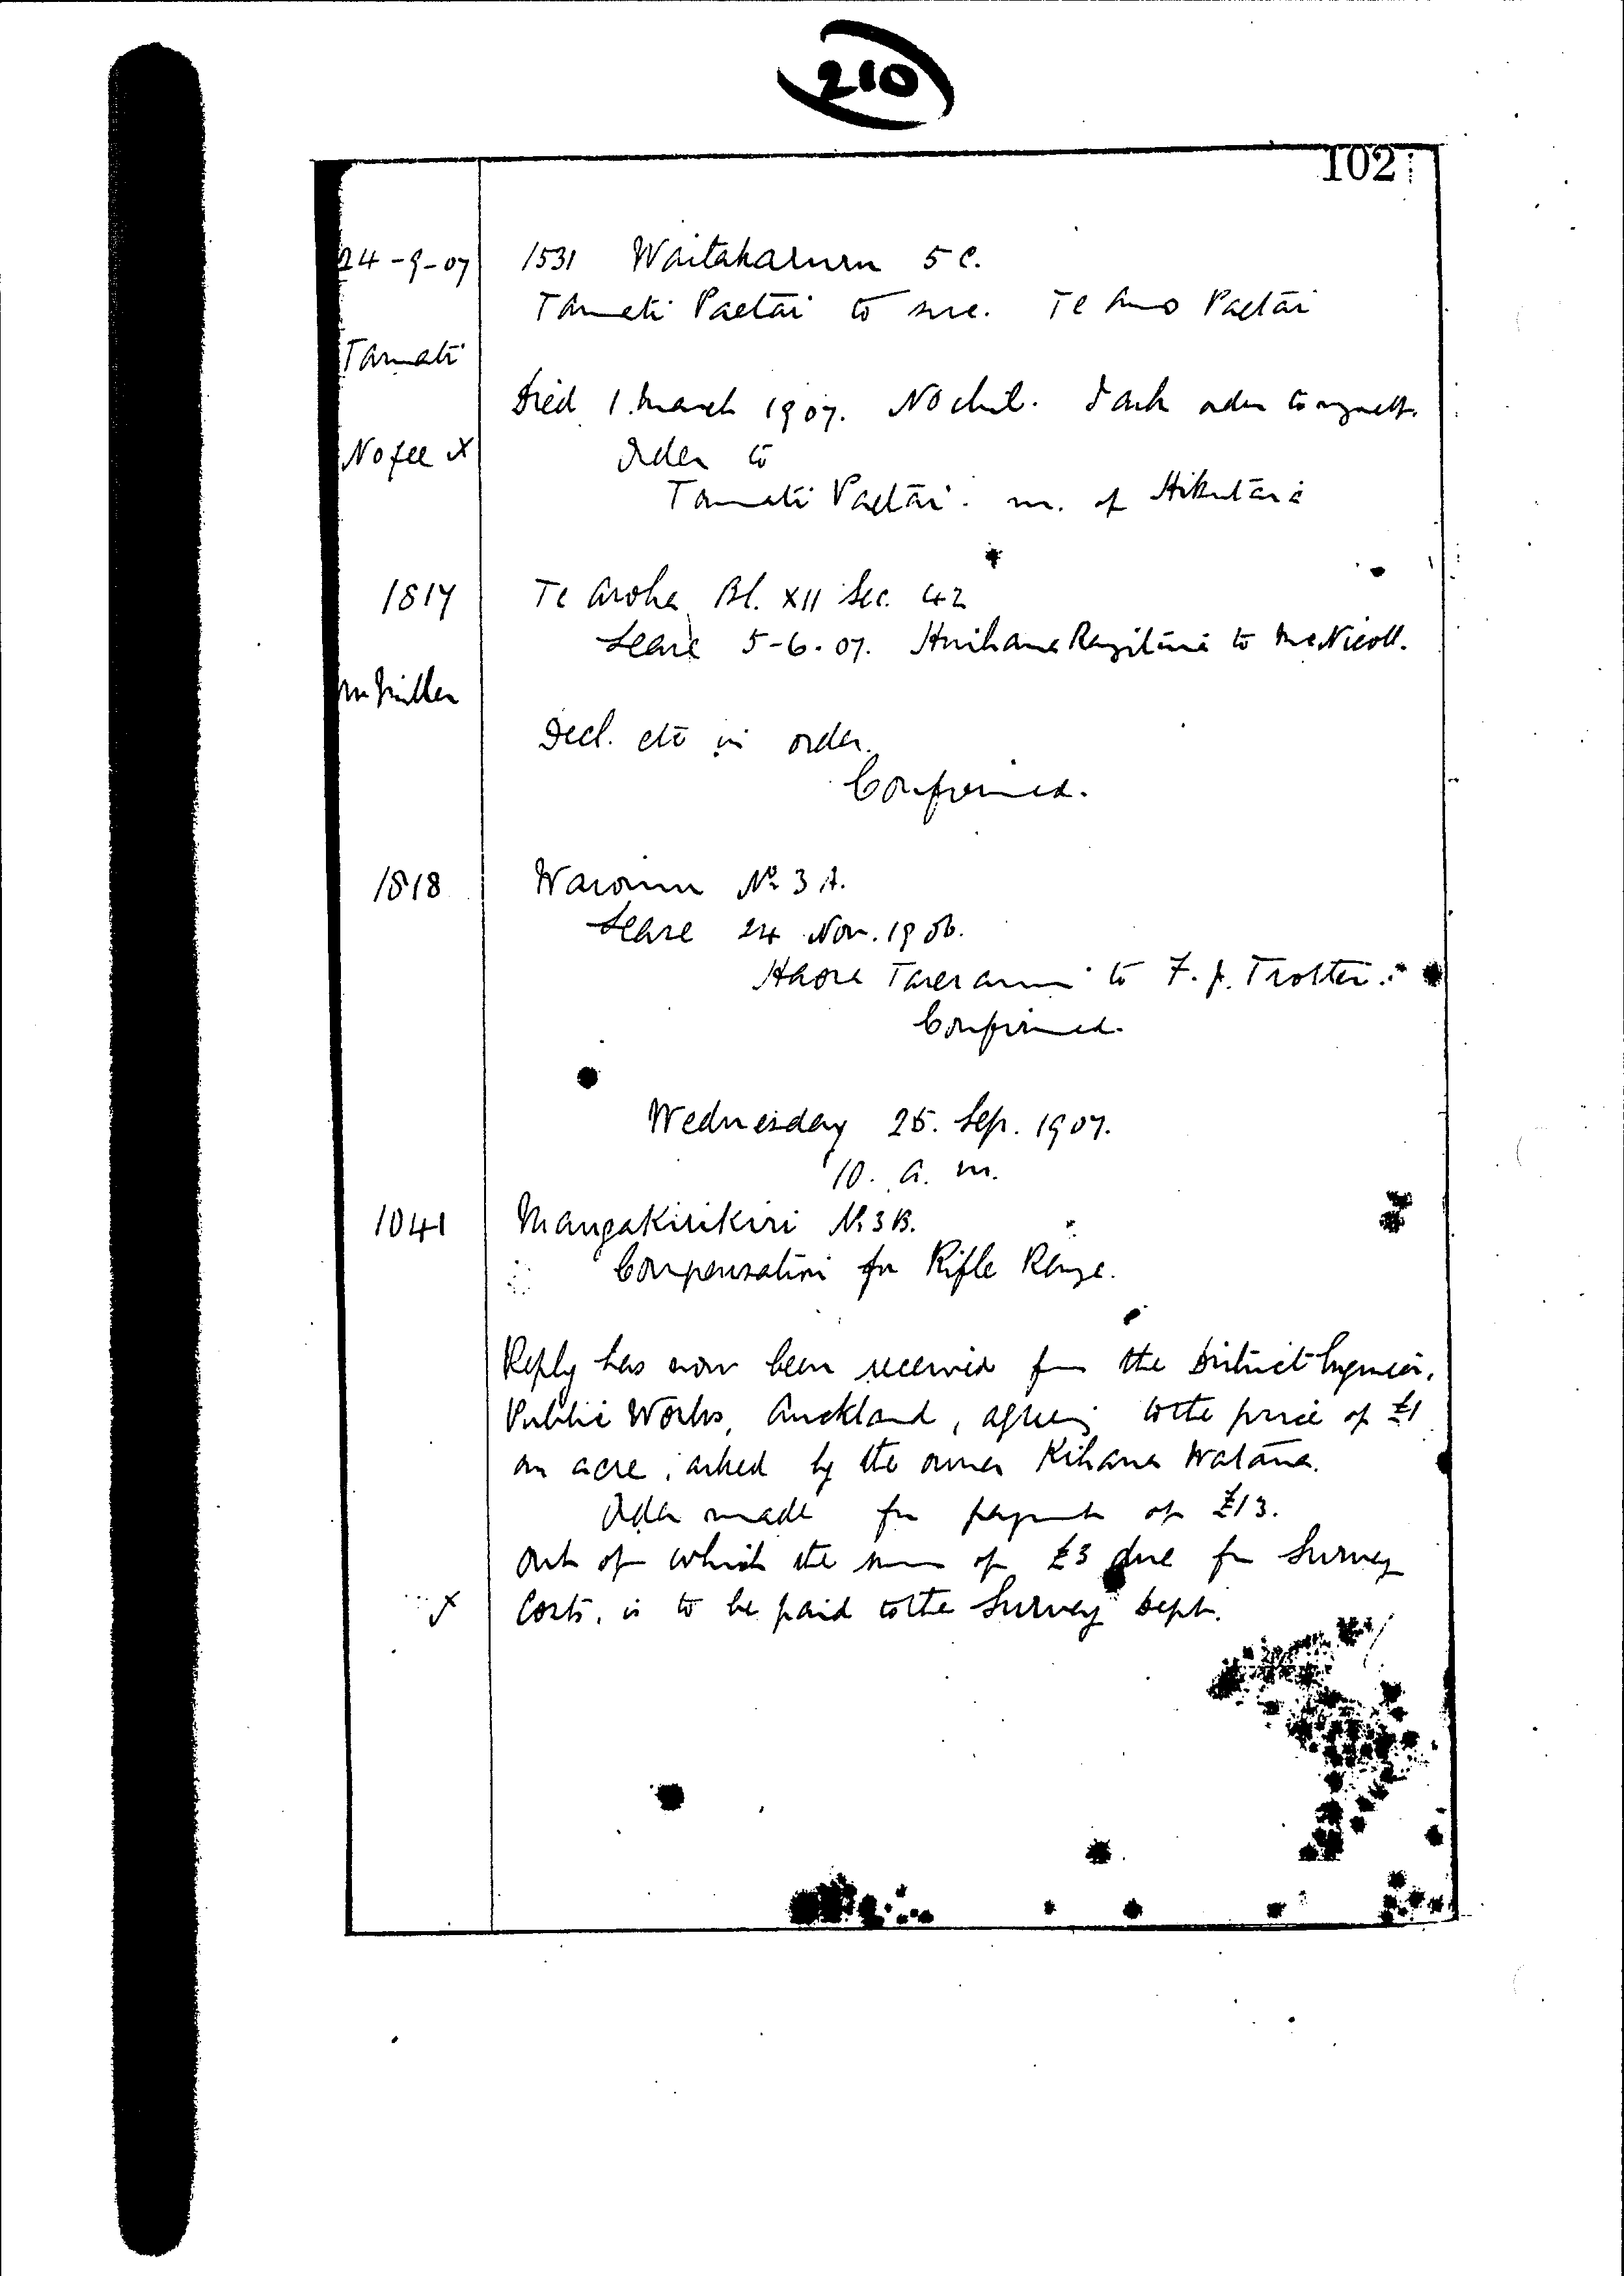 210
102
24-9-07 1531 Waitakaruru 5 C.
Tamati Paetai to suc. Te Amo Paetai
Tamati
Died 1. March 1907. No chil. I ask order to myself.
No fee X Order to
Tamati Paetai. m. of Hikutaia
1817 Te Aroha Bl. XII Sec. 42
Lease 5-6-07. Hurihana Rangitaua to McNicoll.
Mr Miller
Decl. etc in order.
Confirmed.
1818 Waronui No 3 A.
Lease 24 Nov. 1906.
Haora Tareranui to F. J. Trotter.
Confirmed.
Wednesday 25. Sep. 1907.
10. a. m.
1041 Mangakirikiri No 3 B.
Compensation for Rifle Range.
Reply has now been received from the District Engineer,
Public Works, Auckland, agreeing to the price of £1
an acre, asked by the owner Kihana Watana.
Order made for payment of £13.
out of which the sum of £3 due for Survey
x Costs, is to be paid to the Survey Dept.